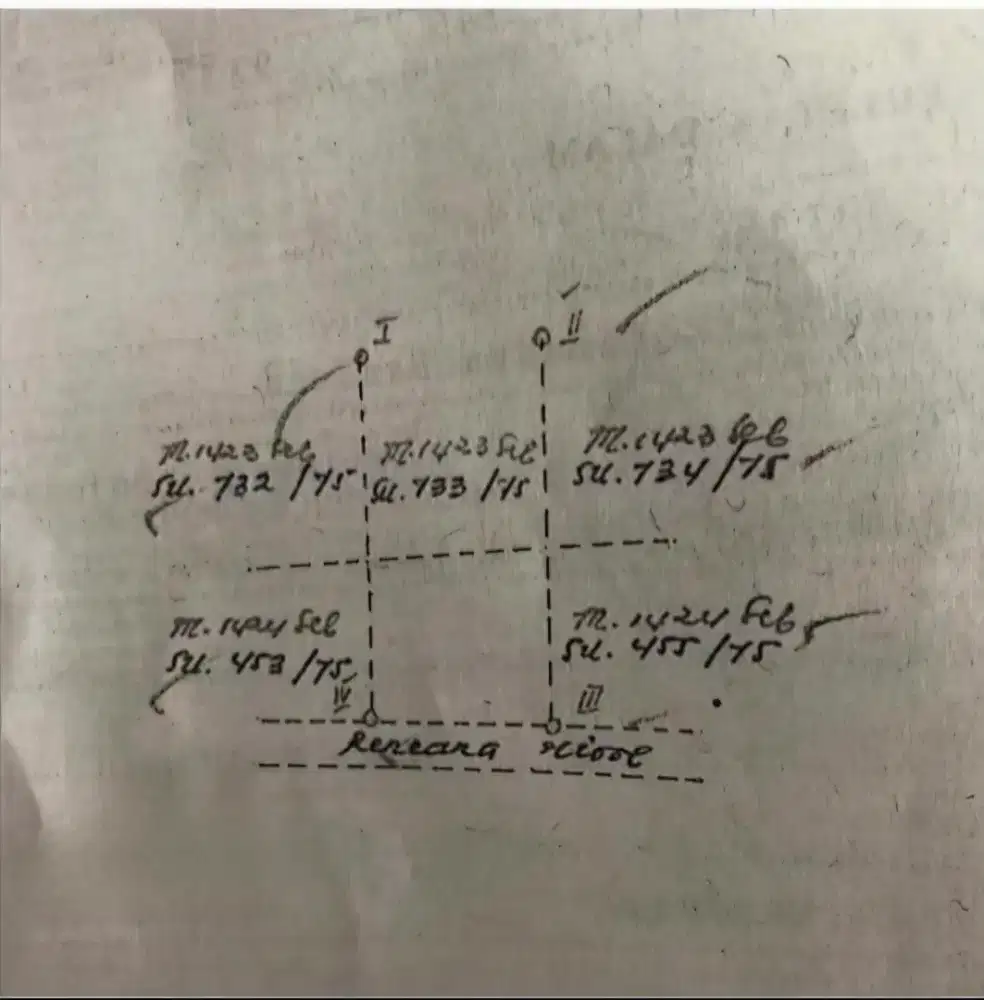 I
II
M.1423 Seb
SU. 732 /75
M.1423 Seb
SU. 733 /75
M.1423 Seb
SU. 734 /75
M.1424 Seb
SU. 453 /75
M.1424 Seb
SU. 455 /75
IV
III
Rencana